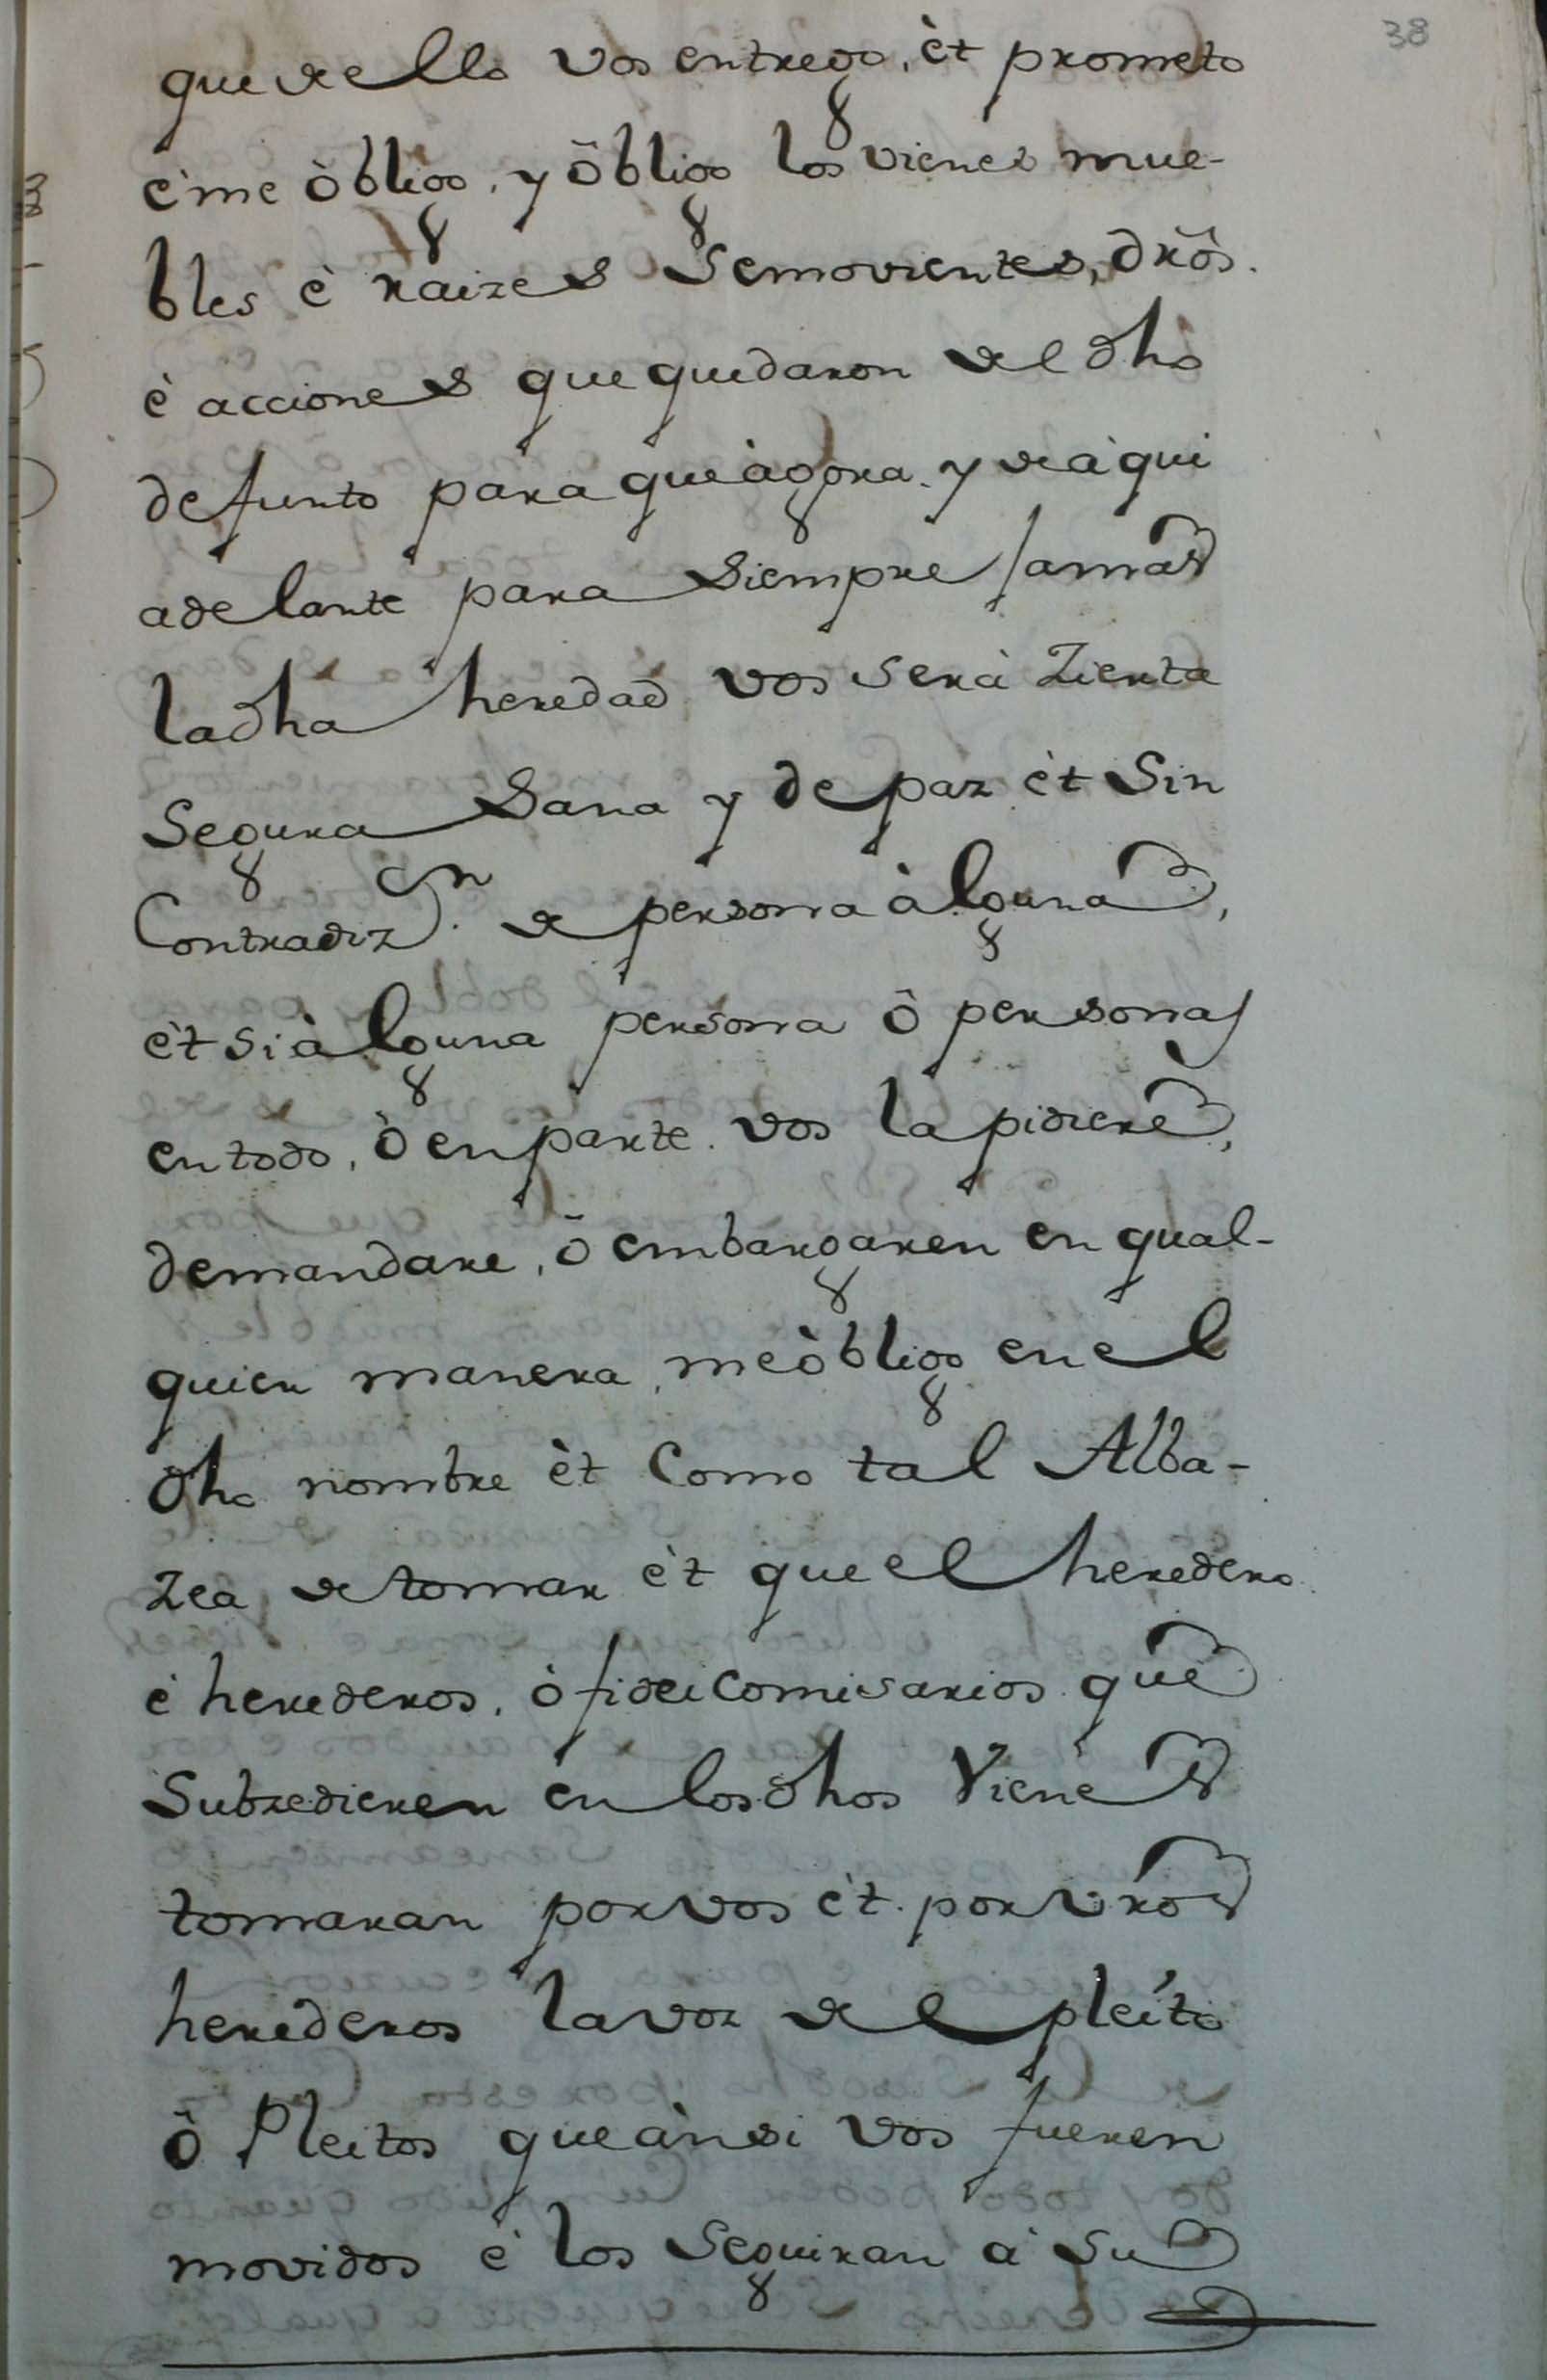 38
que de ello vos entrego, èt prometo
è me òbligo, y òbligo los vienes mue-
bles è raizes Semovientes, dr̃òs.
è acciones que quedaron de el dho
defunto para que àgora y de àqui
adelante para siempre Jamas
la dha heredad vos serà zierta
Segura Sana y de paz èt Sin
Contradizn. de persona àlguna,
èt si àlguna persona ò personas
en todo, ò en parte vos la pidiere,
demandare, ò embargaren en qual-
quier manera, me òbligo en el
dho nombre èt Como tal Alba-
zea de tomar èt que el heredero
è herederos, ò fideicomisarios que
Subzedieren en los dhos Vienes
tomaran por vos èt por vr̃os
herederos la voz de el pleito
ò Pleitos que ànsi vos fueren
movidos è los Seguiran à su